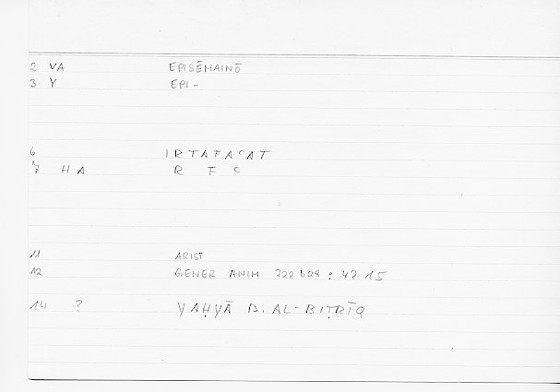 2 VA EPISĒMAINŌ
3 Y EPI-
6 IRTAFAʿAT
7 HA R F ʿ
11 ARIST
12 GENER ANIM 728 b29 : 47.15
14 ? YAḤYĀ B. AL-BIṬRĪQ